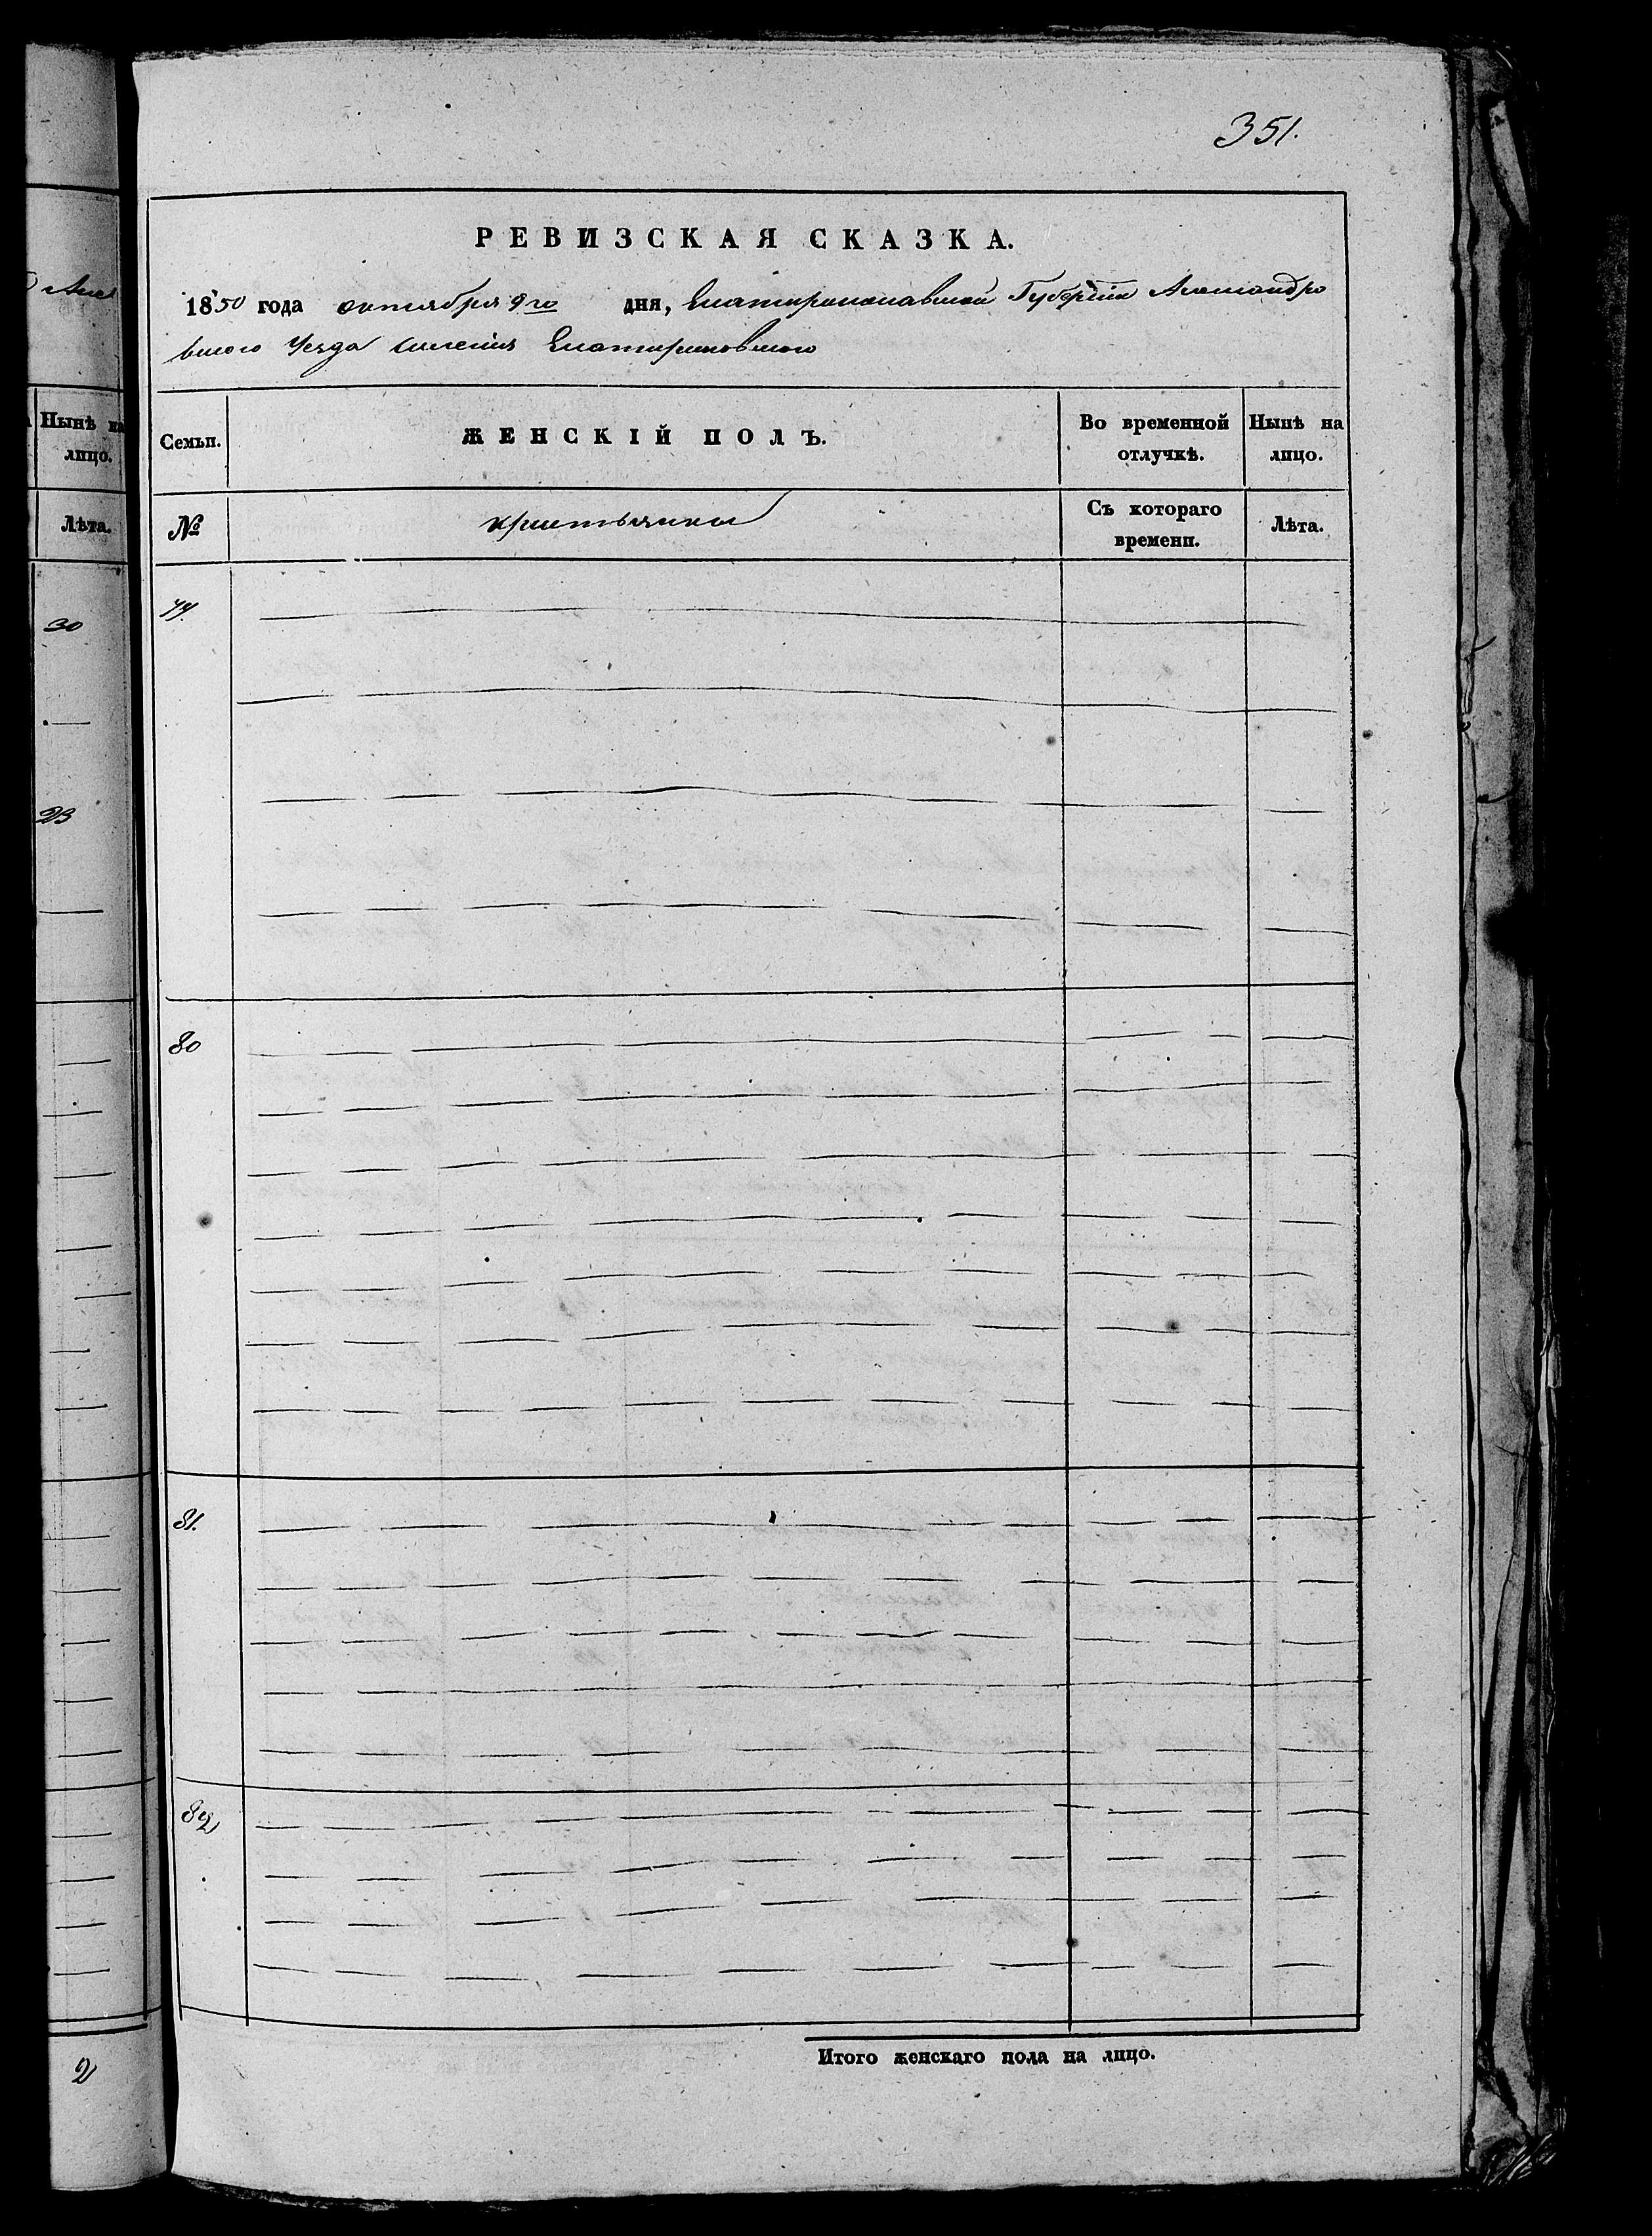 351.
РЕВИЗСКАЯ СКАЗКА.
1850 года октября 9го дня, Екатеринославской Губерніи Александро
вского Уезда селенія Екатериновского
Ныне на лицо.
Семьи.
ЖЕНСКІЙ ПОЛЪ.
Во временной отлучкѣ.
Нынѣ на лицо.
Лѣта.
№
крестьянки
Съ котораго времени.
Лѣта.
30
23
80
81.
82
2
Итого женскаго пола на лицо.